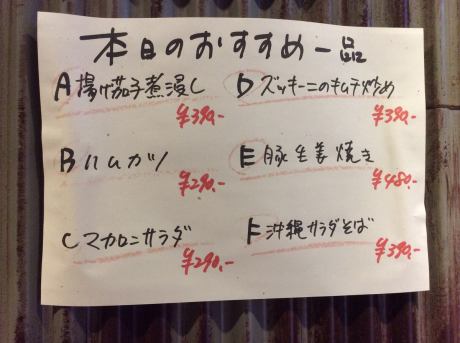 本日のおすすめ一品
A揚げ茄子煮浸し
¥390.-
Bハムカツ
¥290.-
Cマカロニサラダ
¥290.-
Dズッキーニのキムチ炒め
¥390.-
E豚生姜焼き
¥480.-
F沖縄サラダそば
¥390.-